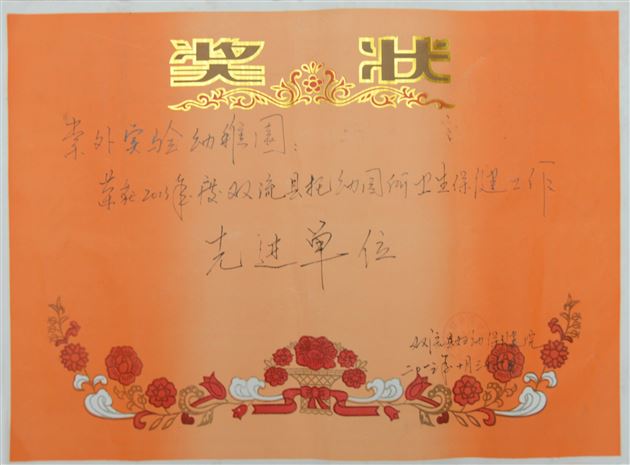 奖状
棠外实验幼稚园：
荣获2015年度双流县托幼园所卫生保健工作
先进单位
双流县妇幼保健院
二〇一五年十月二